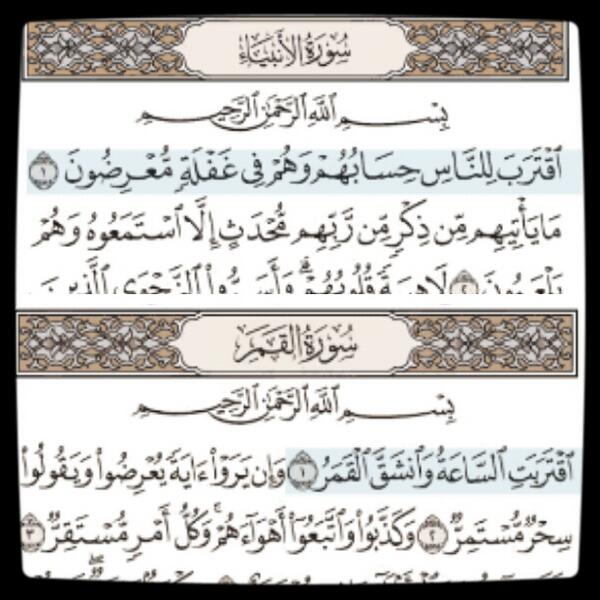 سُورَةُ الأَنبِيَاءِ
بِسْمِ اللَّهِ الرَّحْمَٰنِ الرَّحِيمِ
ٱقْتَرَبَ لِلنَّاسِ حِسَابُهُمْ وَهُمْ فِى غَفْلَةٍ مُّعْرِضُونَ ١
مَا يَأْتِيهِم مِّن ذِكْرٍ مِّن رَّبِّهِم مُّحْدَثٍ إِلَّا ٱسْتَمَعُوهُ وَهُمْ
يَلْعَبُونَ ٢ لَاهِيَةً قُلُوبُهُمْ ۗ وَأَسَرُّوا۟ ٱلنَّجْوَى ٱلَّذِينَ
سُورَةُ القَمَرِ
بِسْمِ اللَّهِ الرَّحْمَٰنِ الرَّحِيمِ
ٱقْتَرَبَتِ ٱلسَّاعَةُ وَٱنشَقَّ ٱلْقَمَرُ ١ وَإِن يَرَوْا۟ ءَايَةً يُعْرِضُوا۟ وَيَقُولُوا۟
سِحْرٌ مُّسْتَمِرٌّ ٢ وَكَذَّبُوا۟ وَٱتَّبَعُوٓا۟ أَهْوَآءَهُمْ ۚ وَكُلُّ أَمْرٍ مُّسْتَقِرٌّ ٣